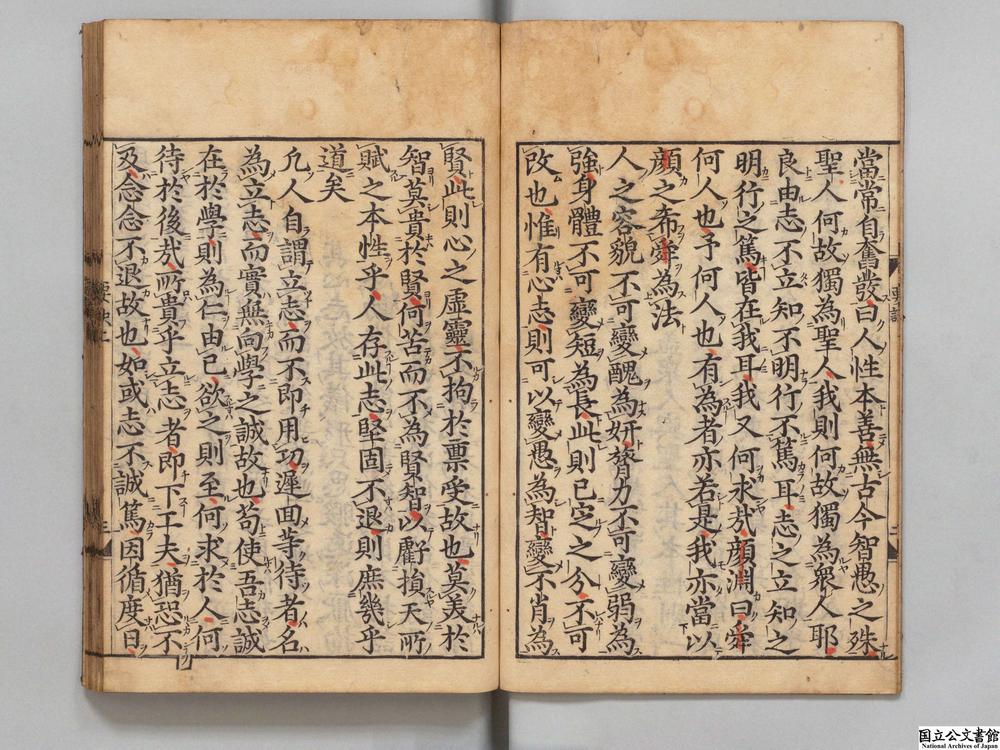 當常自奮發曰人性本善無古今智愚之殊
聖人何故獨為聖人我則何故獨為衆人耶
良由志不立知不明行不篤耳志之立知之
明行之篤皆在我耳我又何求哉顔淵曰舜
何人也予何人也有為者亦若是我亦當以
顔之希舜為法
人之容貌不可變醜為妍膂力不可變弱為
強身體不可變短為長此則已定之分不可
改也惟有心志則可以變愚為智變不肖為
賢此則心之虛靈不拘於稟受故也莫美於
智莫貴於賢何苦而不為賢智以虧損天所
賦之本性乎人存此志堅固不退則庶幾乎
道矣
凡人自謂立志而不即用功遲回等待者名
為立志而實無向學之誠故也苟使吾志誠
在於學則為仁由己欲之則至何求於人何
待於後哉所貴乎立志者即下工夫猶恐不
及念念不退故也如或志不誠篤因循度日
国立公文書館
National Archives of Japan